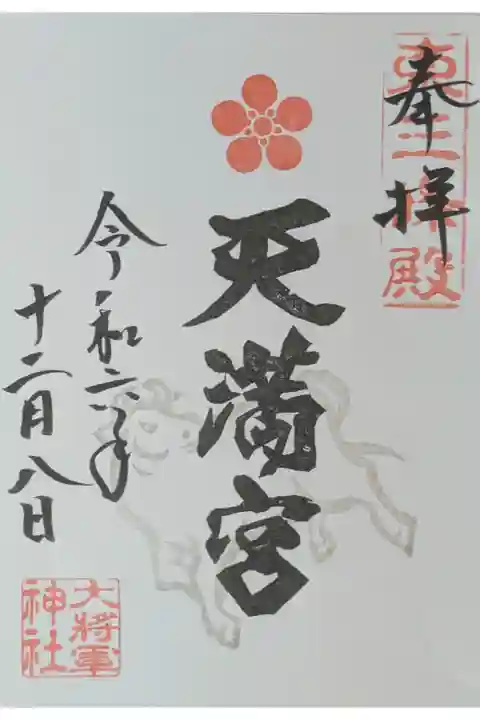 奉拝
東三条殿
天満宮
令和六年
十二月八日
大将軍
神社